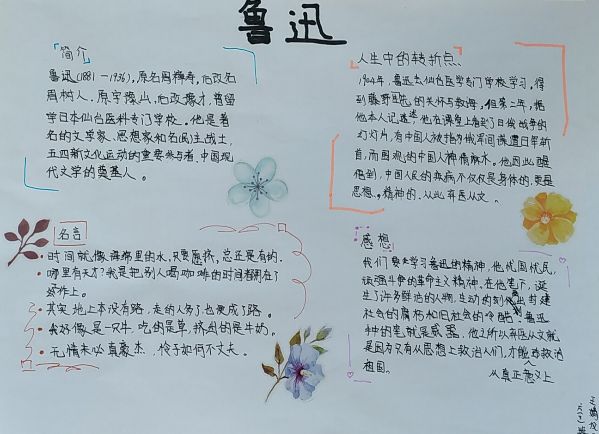 鲁迅
简介
鲁迅(1881—1936),原名周樟寿,后改名
周树人,原字豫山,后改豫才,曾留
学日本仙台医科专门学校。他是著
名的文学家、思想家和名民主战士,
五四新文化运动的重要参与者,中国现
代文学的奠基人。
人生中的转折点
1904年,鲁迅去仙台医学专门学校学习。得
到藤野 的关怀与教诲。但第二年,据
他本人记述,他在课堂上看到了日俄战争的
幻灯片,有中国人被指为俄军间谍遭日军斩
首,而围观的中国人神情麻木。他因此醒
悟到,中国人民的疾病不仅仅是身体的,更是
思想、精神的,从此弃医从文。
名言
时间就像海绵里的水,只要愿挤,总还是有的.
哪里有天才?我是把别人喝咖啡的时间都用在了
作上。
其实地上本没有路,走的人多了也便成了路。
我好像是一只牛,吃的是草,挤出的是牛奶。
无情未必真豪杰,怜子如何不丈夫。
感想
我们要去学习鲁迅的精神,他忧国忧民,
顽强斗争的革命主义精神,在他笔下,诞
生了许多鲜活的人物,生动的刻画出封建
社会的腐朽和旧社会的冷酷。鲁迅
手中的笔就是武器,他之所以弃医从文就
是因为只有从思想上救治人们,才能够救治
祖国。
从真正意义上